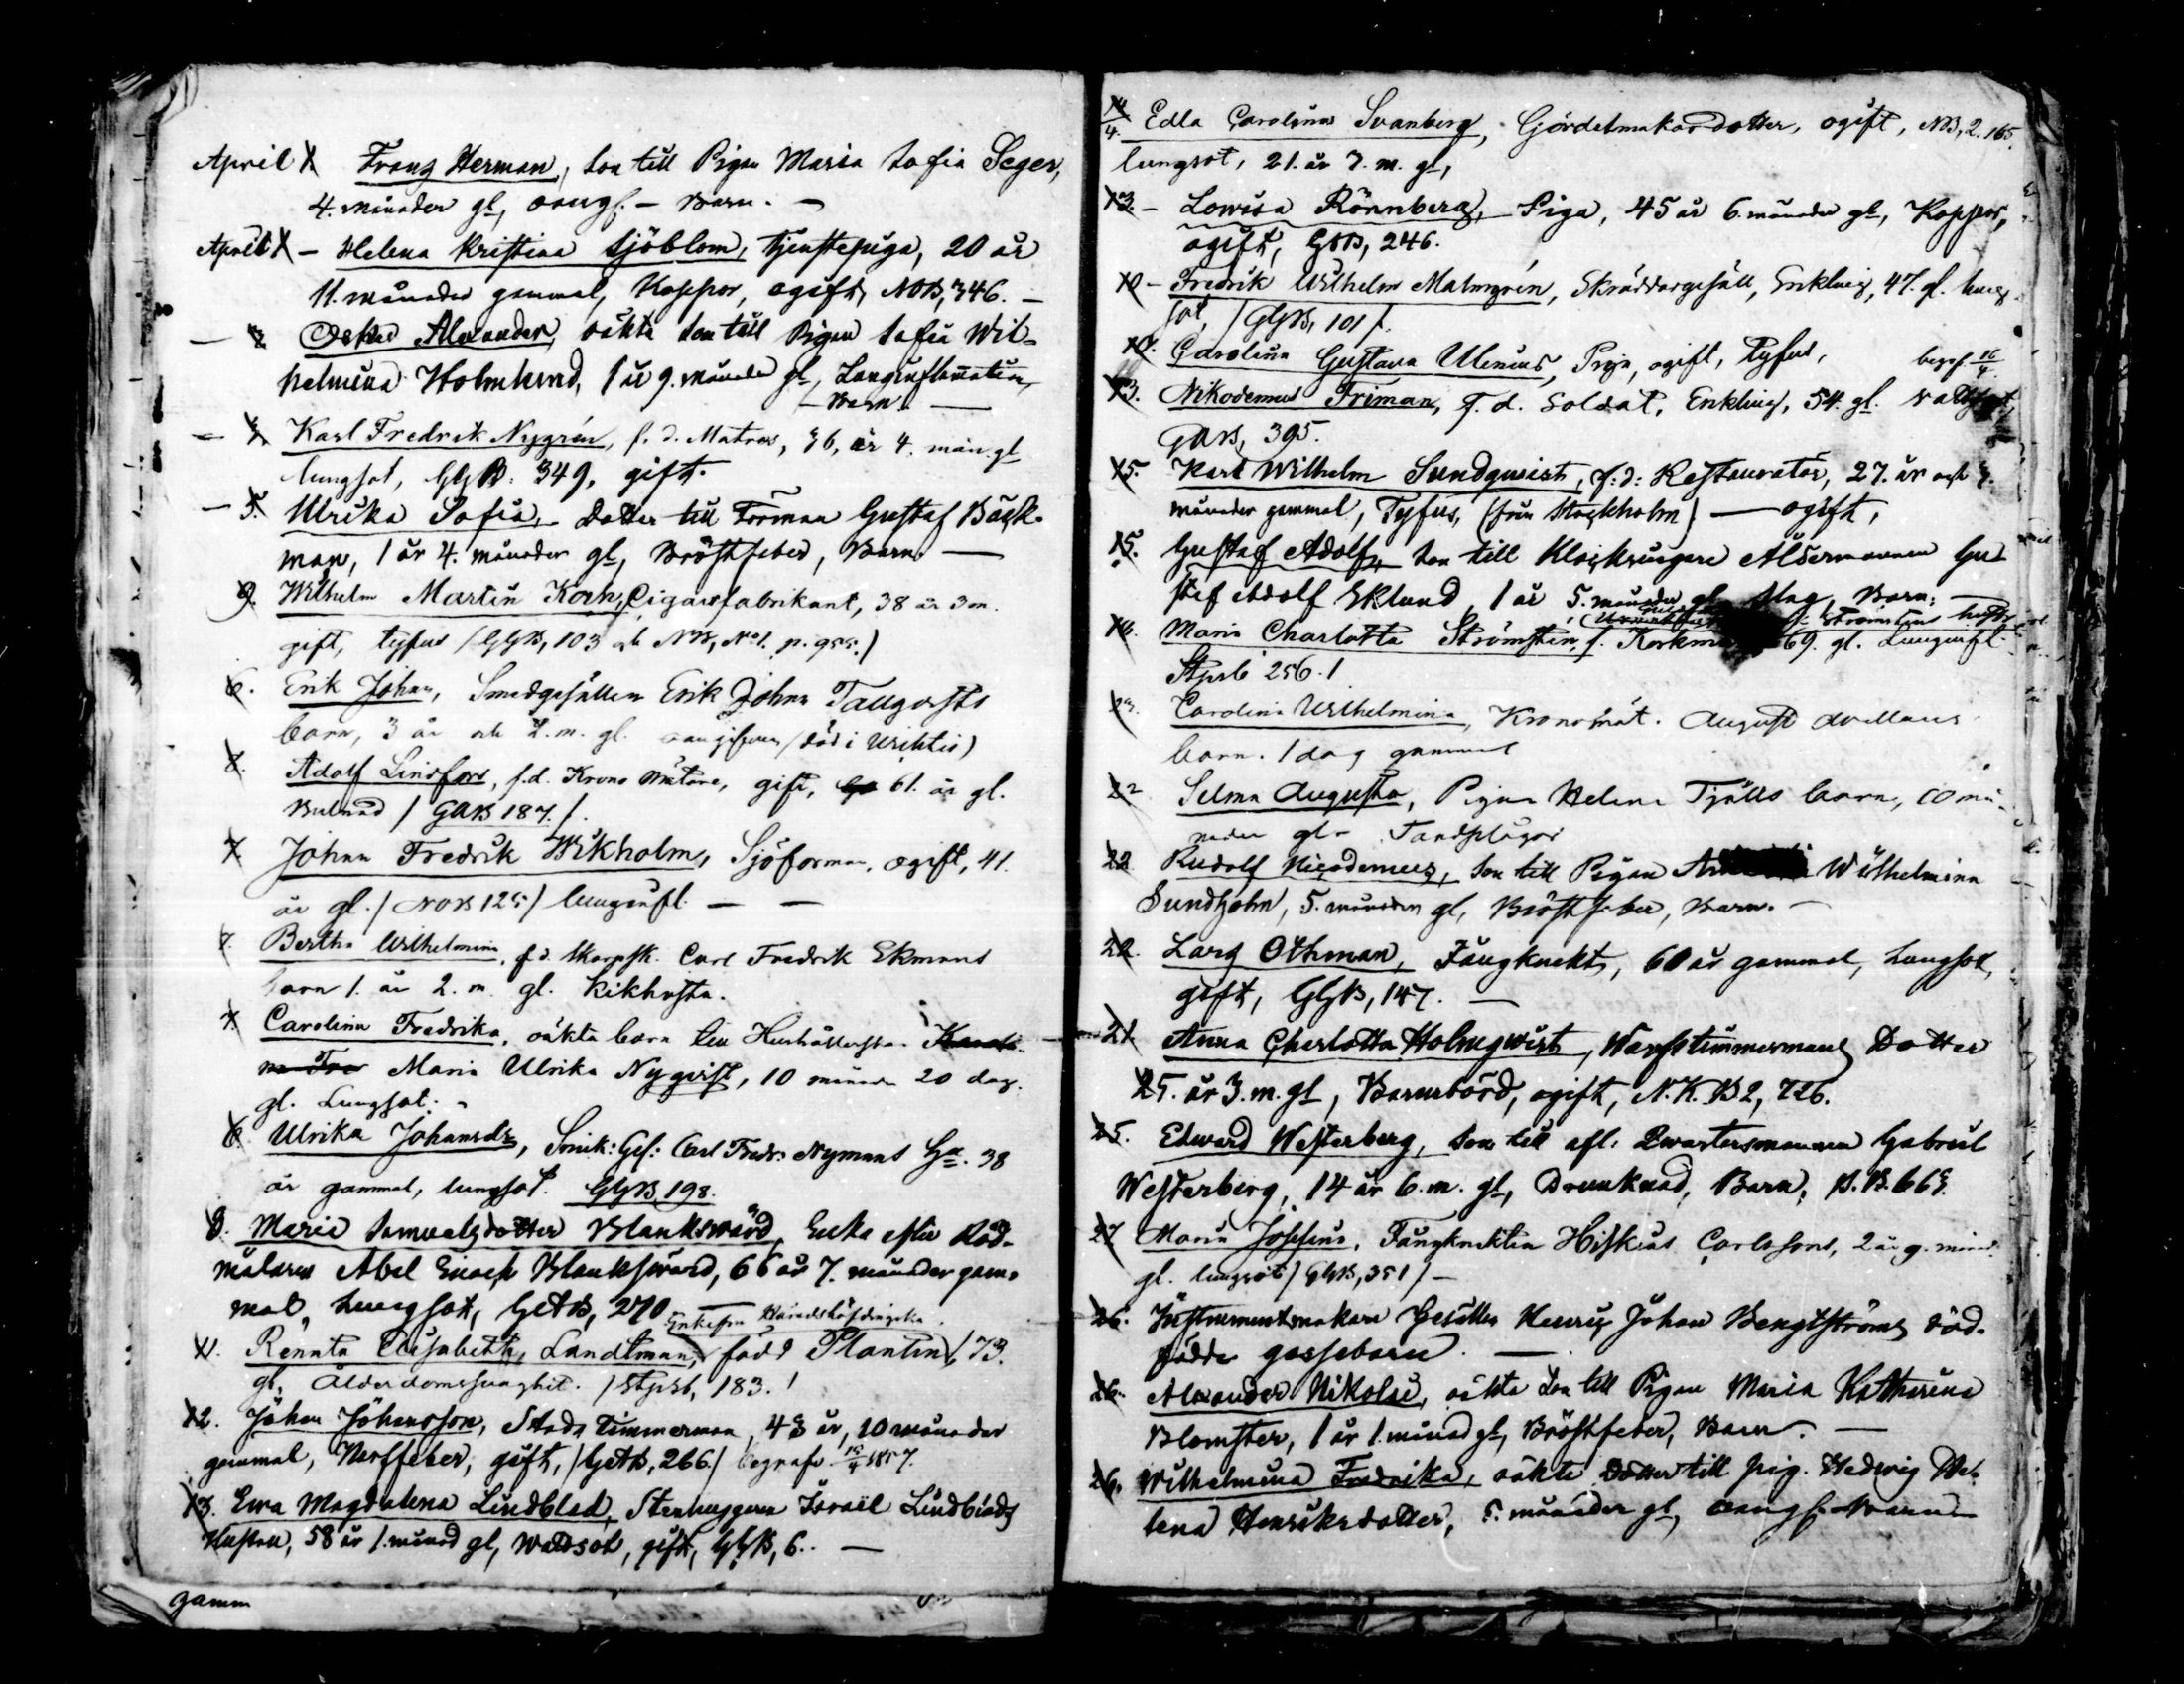 April Franz Herman, son till Pigan Maria Sofia Seger,
4. månader gl, oangf. — Barn. —
April — Helena Kristina Sjöblom, tjenstepiga, 20 år
11. månader gammal, Koppor, ogift, NOB, 346. —
— Oskar Alexander, oäkta son till Pigan Sofia Wil-
helmina Holmlund, 1 år 9. månader gl, Lunginflamation,
— Barn. —
— Karl Fredrik Nygrén, f. d. Matros, 36, år 4. mån. gl
lungsot, GGB. 349, gift.
— 5. Ulrika Sofia, Dotter till Forman Gustaf Bäck-
man, 1 år 4. månader gl, Bröstfeber, Barn. —
9. Wilhelm Martin Koch, Cigarrfabrikant, 38 år 3 m.
gift, tyfus /GGB, 103 och NB, No 1. p. 955./
6. Erik Johan, Smedgesällen Erik Johan Tallqvists
barn, 3 år och 2. m. gl. oangifven /död i Wichtis)
8. Adolf Lindfors, f.d. Krono Mätare, gift, 61. år gl.
Bulnad / GAB 187. /.
7. Johan Fredrik Wikholm, Sjöforman, ogift, 41.
år gl. / NOB 125 / lunginfl. — —
7. Bertha Wilhelmina, f.d. Skarpsk. Carl Fredrik Ekmans
barn 1. år 2. m. gl. Kikhosta.
7. Carolina Fredrika, oäkta barn till Hushållerskan
Maria Ulrika Nyqvist, 10 månader 20 dag.
gl. Lungsot.
6. Ulrika Johansdr, Snick: Ges: Carl Fredr: Nymans Ha. 38
år gammal, lungsot. GGB 198.
8. Maria Samuelsdotter Blanksvärd, Enka efter Röd-
målaren Abel Enoch Blanksvärd, 66 år 7. månader gam-
mal, Lungsot, GAB, 270 —
Enkefru Häradshöfdingskan
11. Renata Elisabeth, Landtman, född Plantin, 73.
gl, Ålderdomssvaghet. / Stpsb, 183. /
12. Johan Johansson, Stads timmerman, 43 år, 10 månader
gammal, Nerffeber, gift, /GAB, 266./ begrafv 15/4 1857.
13. Ewa Magdalena Lindblad, Stenhuggaren Israël Lindblads
Hustru, 58 år 1. månad gl, Wattsot, gift, GGB, 6. —
gamm
14/4. Edla Carolina Svanberg, Gördelmakar dotter, ogift, NB, 2. 165.
lungsot, 21. år 7. m. gl,
13. — Lowisa Rönnberg, Piga, 45 år 6. månader gl, Koppor,
ogift, GÖB, 246.
10 — Fredrik Wilhelm Malmgrén, Skräddargesäll, Enkling, 47. gl. lung-
sot, / GGB, 101 /.
10. Carolina Gustava Ulenius, Piga, ogift, Tyfus, begrf. 16/4
13. Nikodemus Friman, f. d. Soldat, Enkling, 54. gl. Wattsot,
GAB, 395.
15. Karl Wilhelm Sundqwist, f: d: Restauratör, 27. år och
månader gammal, Tyfus, (från Stockholm) — ogift,
15. Gustaf Adolf, son till Klockringare Åldermannen Gu-
staf Adolf Eklund, 1 år 5. månader gl, Slag, Barn. —
Strömstens hustru
16. Maria Charlotta Strömsten, f. 69. gl. Lunginfl.
Stpsb 256. /
Carolina Wilhelmina, Kronomät. August Avellans
barn. 1 dag gammal
22 Selma Augusta, Pigan Helena Tjälls barn, 10 må-
nader gl. Tandplågor
22 Rudolf Nicodemus, son till Pigan Wilhelmina
Sundholm, 5. månader gl, Bröstfeber, Barn. —
22. Lars Othman, Fångknekt, 60 år gammal, Lungsot,
gift, GGB, 147. —
21. Anna Charlotta Holmqwist, Warfstimmermans Dotter
25. år 3. m. gl, Barnsbörd, ogift, N. K. B 2, 726.
25. Edward Westerberg, son till afl: Qwartersmannen Gabriel
Westerberg, 14 år 6. m. gl, Drunknad, Barn,
27 Maria Josefina, Fångknekten Hiskias Carlssons, 2 år 9. månd.
gl. lungsot / GGB, 351 / —
26. Instrumentmakare Gesällen Henrik Johan Bengtströms död-
födde gossebarn. —
26. Alexander Nikolai, oäkta son till Pigan Maria Katharina
Blomster, 1 år 1. månad gl, Bröstfeber, Barn. —
26. Wilhelmina Fredrika, oäkta Dotter till pig. Hedwig He-
lena Henriksdotter, 5. månader gl, oangf. Barn —